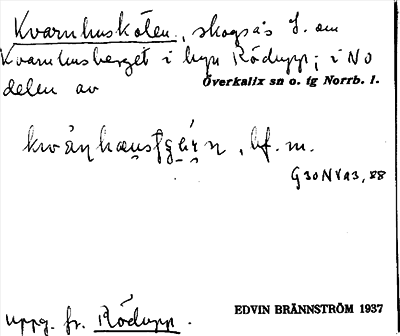 Kvarnhuskölen, skogsås S. om
Kvarnhusberget i byn Rödupp; i NO
delen av Överkalix sn o. tg Norrb. l.
bf. m.
G30NVa3, 88
uppg. fr. Rödupp.
EDVIN BRÄNNSTRÖM 1937